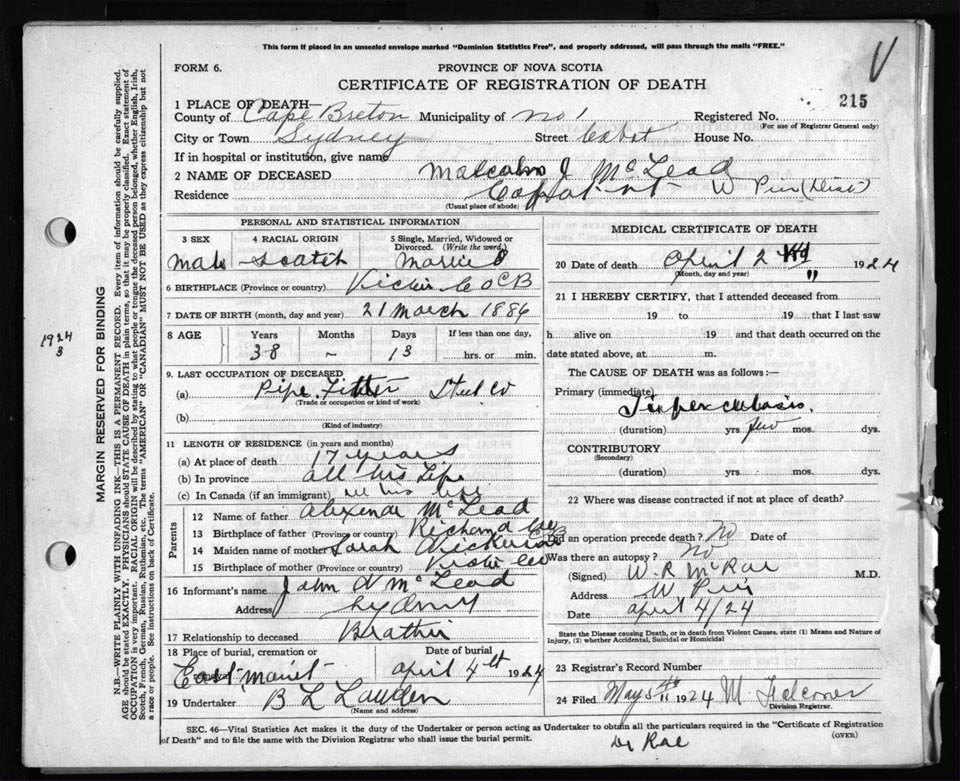 This form if placed in an unsealed envelope marked "Dominion Statistics Free", and properly addressed, will pass through the mails "FREE."
FORM 6.
PROVINCE OF NOVA SCOTIA
CERTIFICATE OF REGISTRATION OF DEATH
215
1 PLACE OF DEATH—
County of Cape Breton Municipality of No 1 Registered No.
(For use of Registrar General only)
City or Town Sydney Street Cabot House No.
If in hospital or institution, give name
2 NAME OF DECEASED Malcolm J McLead
Residence W Pier (Dist)
(Usual place of abode)
PERSONAL AND STATISTICAL INFORMATION
3 SEX 4 RACIAL ORIGIN 5 Single, Married, Widowed or Divorced. (Write the word.)
Male Scotch Married
6 BIRTHPLACE (Province or country) Victoria Co C B
7 DATE OF BIRTH (month, day and year) 21 March 1886
8 AGE Years Months Days If less than one day,
38 - 13 hrs. or min.
9. LAST OCCUPATION OF DECEASED
(a) Pipe Fitter Steel Co
(Trade or occupation or kind of work)
(b)
(Kind of industry)
11 LENGTH OF RESIDENCE (in years and months)
(a) At place of death 17 years
(b) In province all his Life
(c) In Canada (if an immigrant) all his life
Parents
12 Name of father McLead
13 Birthplace of father (Province or country) Richmond Co CB
14 Maiden name of mother Sarah
15 Birthplace of mother (Province or country) Victoria Co
16 Informant's name John A McLead
Address Sydney
17 Relationship to deceased Brother
18 Place of burial, cremation or removal Date of burial
East Mount April 4th 1924
19 Undertaker B L
(Name and address)
MEDICAL CERTIFICATE OF DEATH
20 Date of death April 2 1924
(Month, day and year)
21 I HEREBY CERTIFY, that I attended deceased from
19 to 19 that I last saw
h alive on 19 and that death occurred on the
date stated above, at m.
The CAUSE OF DEATH was as follows:—
Primary (immediate)
Tuberculosis
(duration) yrs. few mos. dys.
CONTRIBUTORY
(Secondary)
(duration) yrs. mos. dys.
22 Where was disease contracted if not at place of death?
Did an operation precede death? No Date of
Was there an autopsy? No
(Signed) W. R McRae M.D.
Address W Pier
Date April 4/24
State the Disease causing Death, or in death from Violent Causes, state (1) Means and Nature of Injury, (2) whether Accidental, Suicidal or Homicidal
23 Registrar's Record Number
24 Filed May 5th 1924 M Falconer
Division Registrar.
SEC. 46—Vital Statistics Act makes it the duty of the Undertaker or person acting as Undertaker to obtain all the particulars required in the "Certificate of Registration of Death" and to file the same with the Division Registrar who shall issue the burial permit.
(OVER)
Dr Rae
1924
3
MARGIN RESERVED FOR BINDING
N.B.—WRITE PLAINLY WITH UNFADING INK—THIS IS A PERMANENT RECORD. Every item of information should be carefully supplied.
AGE should be stated EXACTLY. PHYSICIANS should STATE CAUSE OF DEATH in plain terms, so that it may be properly classified. Exact statement of
OCCUPATION is very important. RACIAL ORIGIN will be described by stating to what people or tongue the deceased person belonged, whether English, Irish,
Scotch, French, German, Russian, Ruthenian, etc. The terms "AMERICAN" or "CANADIAN" MUST NOT BE USED as they express citizenship but not
a race or people. See instructions on back of Certificate.